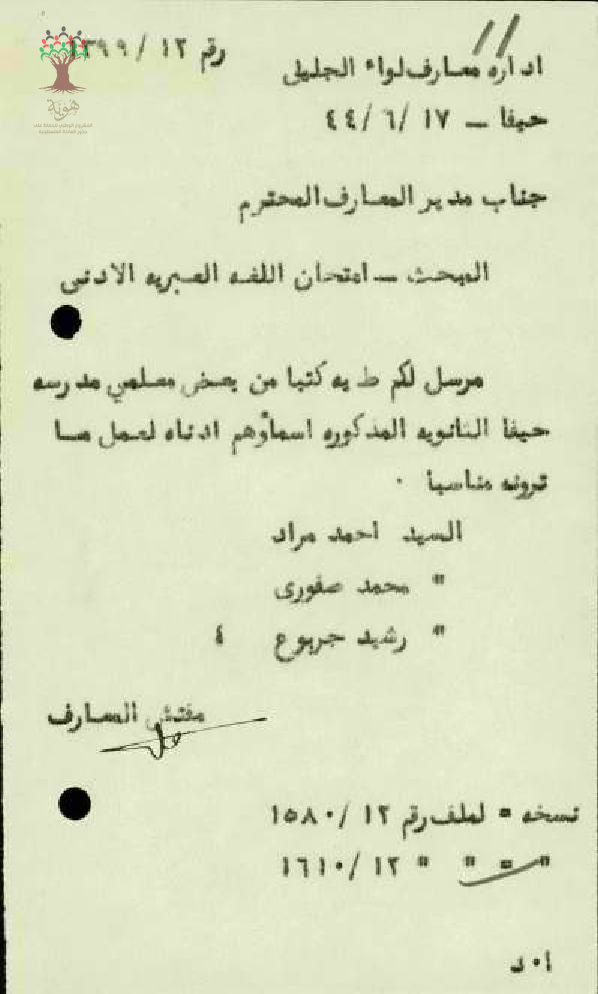 رقم ١٢ /١٣٩٩
اداره معارف لواء الجليل
حيفا ــ ١٧ /٦ /٤٤
جناب مدير المعارف المحترم
المبحث ــ امتحان اللغه العبريه الادنى
مرسل لكم ط يه كتبا من بعض معلمي مدرسه
حيفا الثانويه المذكوره اسماؤهم ادناه لعمل مــا
ترونه مناسبا ٠
السيد احمد مراد
" محمد صفورى
" رشيد جربوع ٤
مفتش المعارف
نسخه = لملف رقم ١٢ /١٥٨٠
" = " " ١٢ /١٦١٠
ا٠ د
هوية